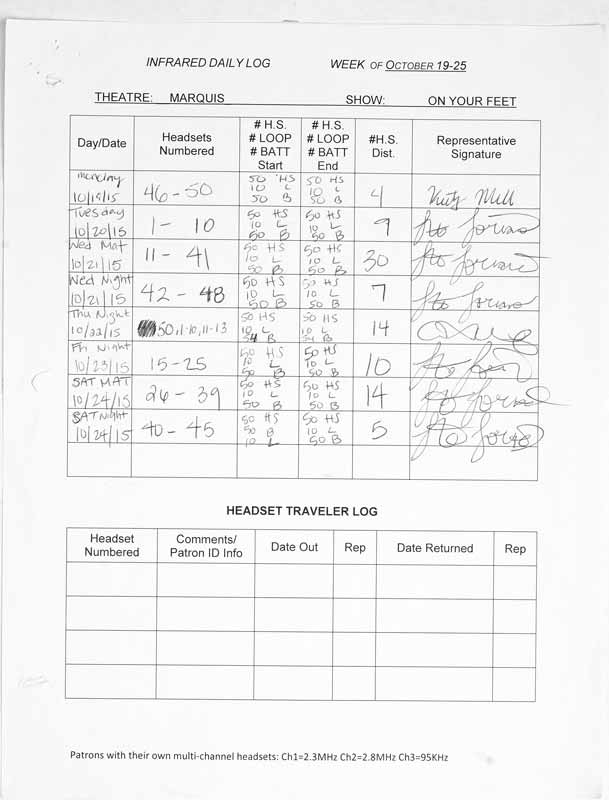 INFRARED DAILY LOG WEEK OF OCTOBER 19-25
THEATRE: MARQUIS SHOW: ON YOUR FEET
Day/Date Headsets Numbered # H.S. # LOOP # BATT Start # H.S. # LOOP # BATT End #H.S. Dist. Representative Signature
Monday 10/19/15 46-50 50 HS 10 L 50 B 50 HS 10 L 50 B 4
Tuesday 10/20/15 1-10 50 HS 10 L 50 B 50 HS 10 L 50 B 9
Wed Mat 10/21/15 11-41 50 HS 10 L 50 B 50 HS 10 L 50 B 30
Wed Night 10/21/15 42-48 50 HS 10 L 50 B 50 HS 10 L 50 B 7
Thu Night 10/22/15 50,1-10,11-13 50 HS 10 L 54 B 50 HS 10 L 54 B 14
Fri Night 10/23/15 15-25 50 HS 10 L 50 B 50 HS 10 L 50 B 10
SAT MAT 10/24/15 26-39 50 HS 10 L 50 B 50 HS 10 L 50 B 14
SAT Night 10/24/15 40-45 50 HS 50 B 10 L 50 HS 10 L 50 B 5
HEADSET TRAVELER LOG
Headset Numbered Comments/ Patron ID Info Date Out Rep Date Returned Rep
Patrons with their own multi-channel headsets: Ch1=2.3MHz Ch2=2.8MHz Ch3=95KHz